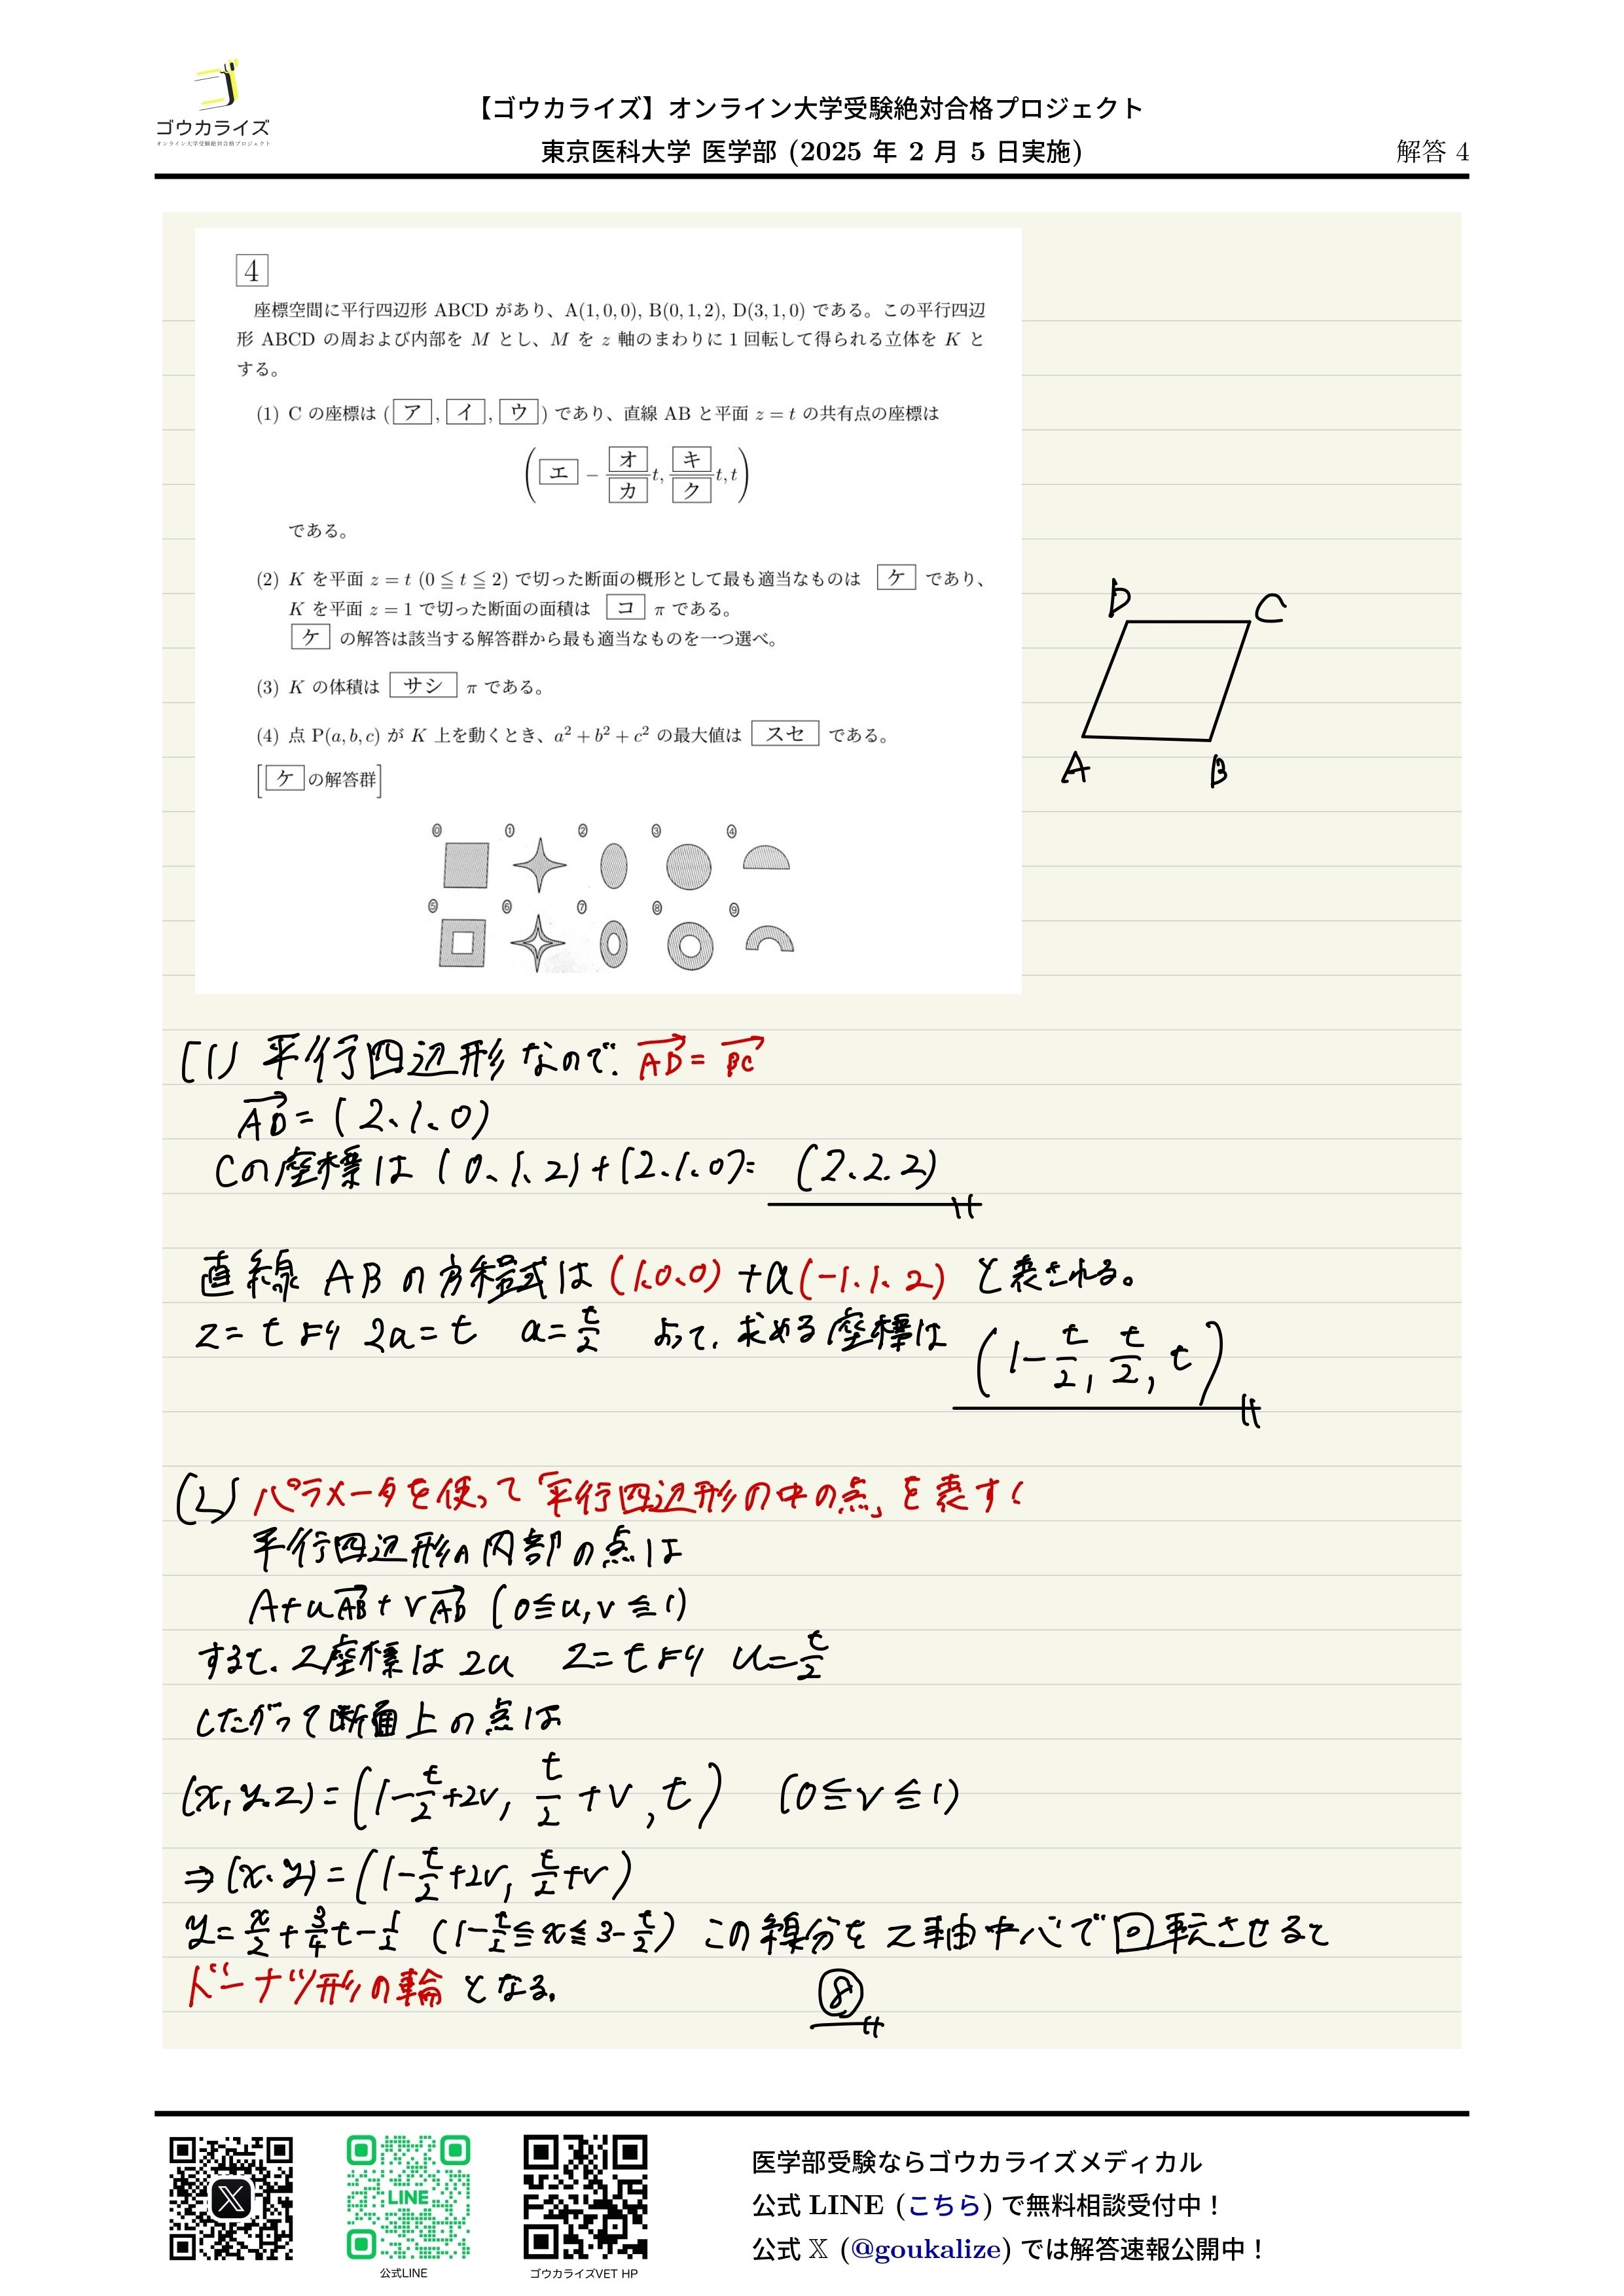 ゴウカライズ
オンライン大学受験絶対合格プロジェクト
【ゴウカライズ】オンライン大学受験絶対合格プロジェクト
東京医科大学 医学部 (2025 年 2 月 5 日実施)
解答 4
4
座標空間に平行四辺形 ABCD があり、A(1, 0, 0), B(0, 1, 2), D(3, 1, 0) である。この平行四辺
形 ABCD の周および内部を M とし、M を z 軸のまわりに 1 回転して得られる立体を K と
する。
(1) C の座標は (ア, イ, ウ) であり、直線 AB と平面 z = t の共有点の座標は
(エ − オ/カ t, キ/ク t, t)
である。
(2) K を平面 z = t (0 ≦ t ≦ 2) で切った断面の概形として最も適当なものは ケ であり、
K を平面 z = 1 で切った断面の面積は コ π である。
ケ の解答は該当する解答群から最も適当なものを一つ選べ。
(3) K の体積は サシ π である。
(4) 点 P(a, b, c) が K 上を動くとき、a² + b² + c² の最大値は スセ である。
[ケ の解答群]
⓪ ① ② ③ ④
⑤ ⑥ ⑦ ⑧ ⑨
D C
A B
(1) 平行四辺形なので、AD→ = BC→
AD→ = (2、1、0)
Cの座標は (0、1、2)+(2、1、0)= (2、2、2)
直線 AB の方程式は (1、0、0) +a(-1、1、2) と表される。
z = t より 2a = t a = t/2 よって、求める座標は (1 - t/2, t/2, t)
(2) パラメータを使って「平行四辺形の中の点」を表すく
平行四辺形の内部の点は
A+uAB→+vAD→ (0≦u,v≦1)
すると、z座標は 2u z=tより u=t/2
したがって断面上の点は
(x,y,z)=(1-t/2+2v, t/2+v, t) (0≦v≦1)
⇒(x、y)=(1-t/2+2v, t/2+v)
y=x/2+3/4t-1/2 (1-t/2≦x≦3-t/2) この線分を z軸中心で回転させると
ドーナツ形の輪 となる。 ⑧
LINE
公式LINE
ゴウカライズVET HP
医学部受験ならゴウカライズメディカル
公式 LINE (こちら) で無料相談受付中！
公式 𝕏 (@goukalize) では解答速報公開中！